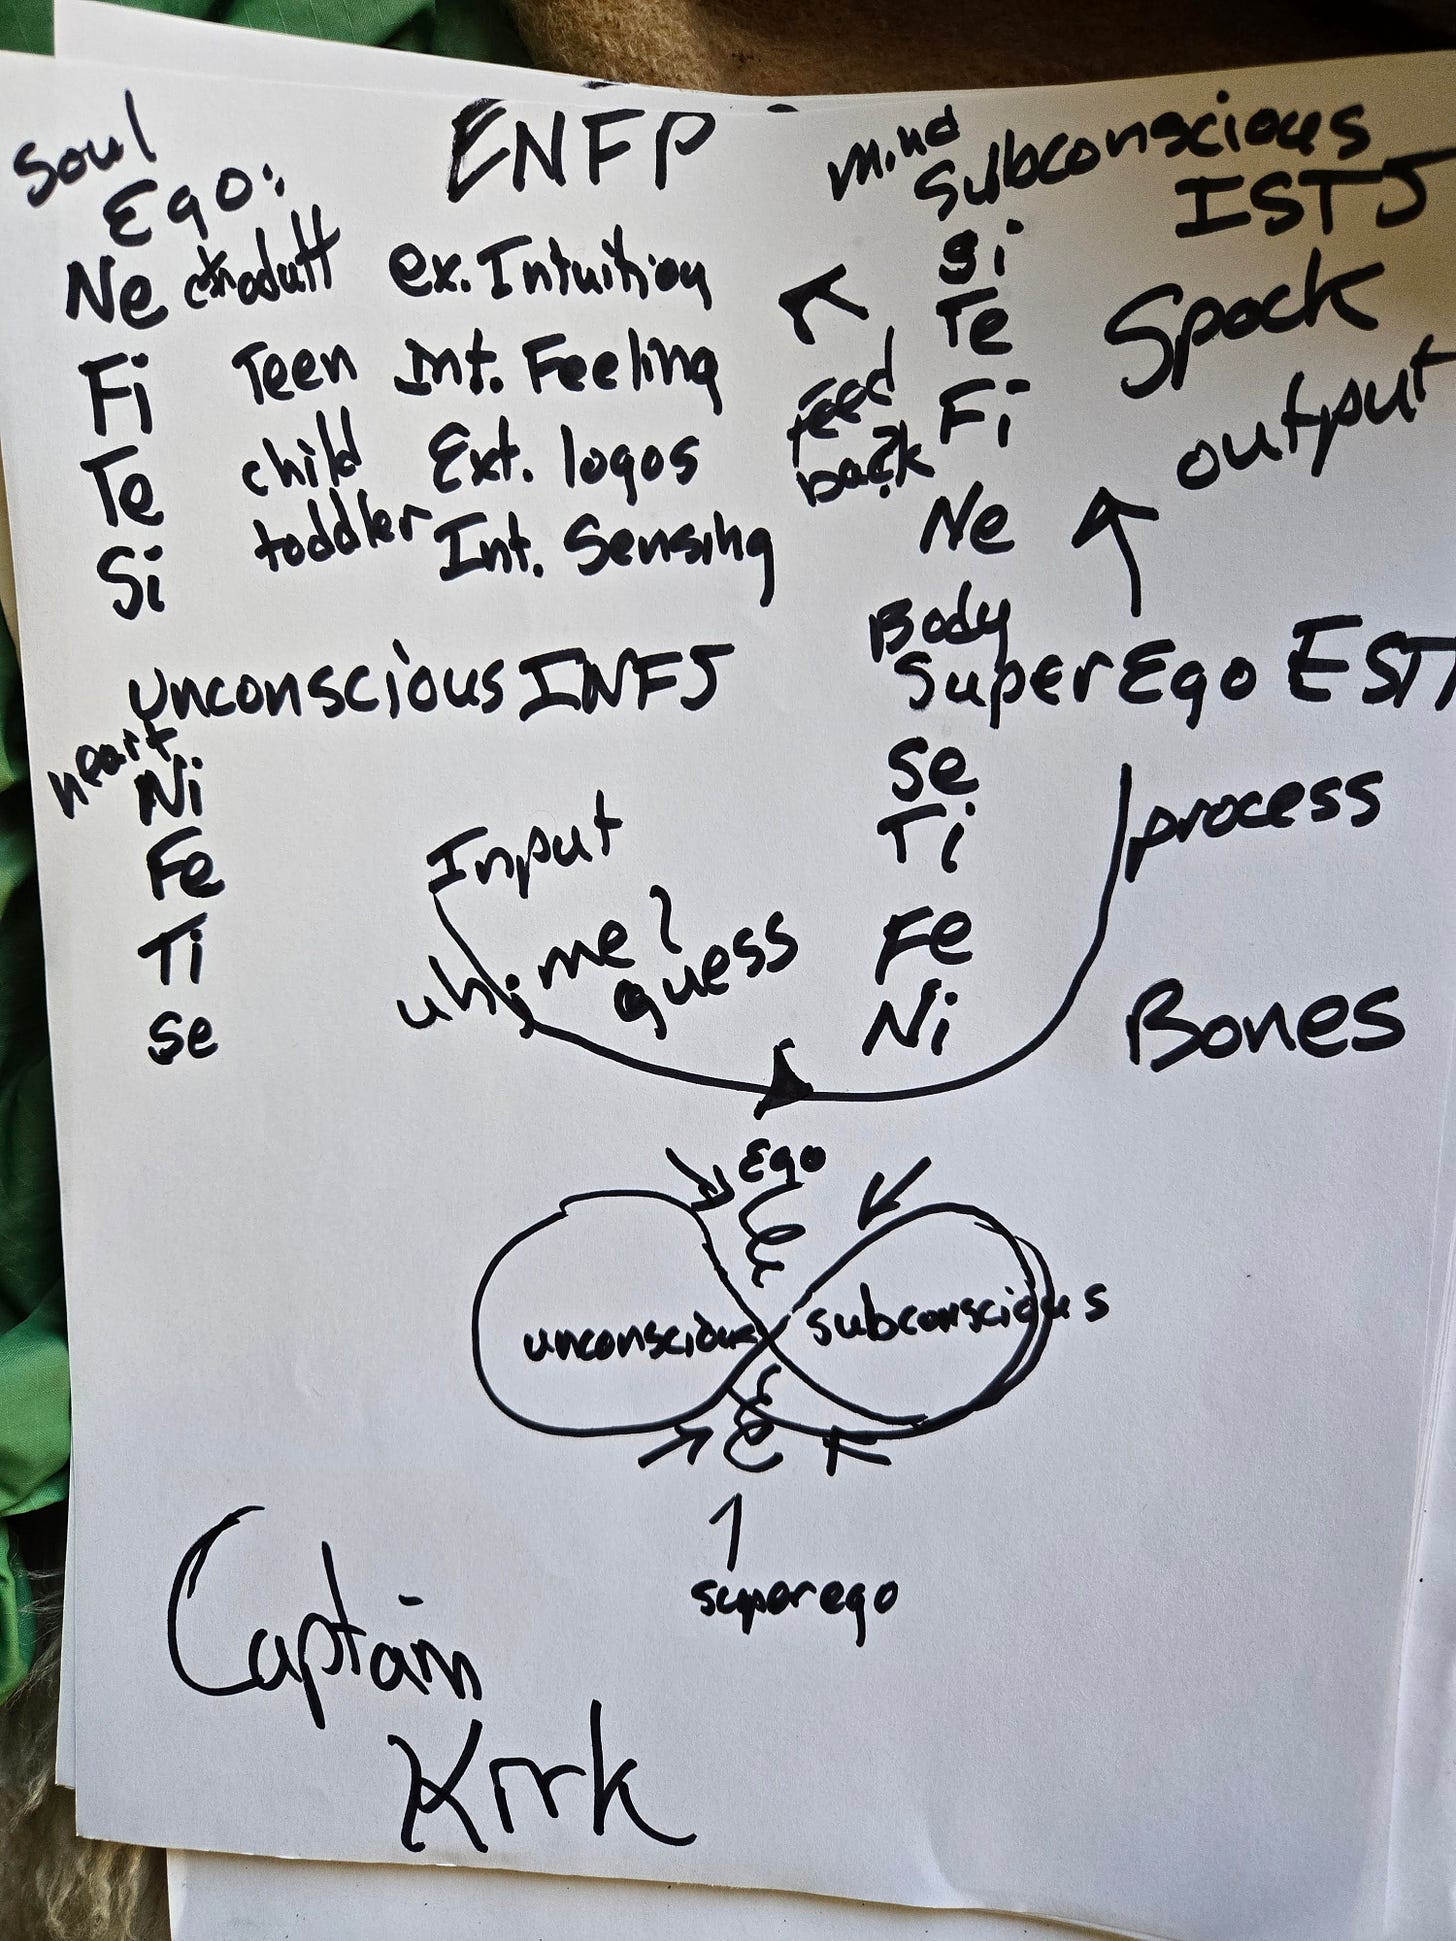 ENFP
Soul
Ego:
Ne adult ex. Intuition
Fi Teen Int. Feeling
Te child Ext. logos
Si toddler Int. Sensing
unconscious INFJ
heart
Ni
Fe
Ti
Se
Mind
Subconscious
ISTJ
Si
Te
Fi
Ne
Spock
output
feed
back
Body
SuperEgo EST
Se
Ti
Fe
Ni
process
Bones
Input
uh, me?
guess
Ego
unconscious
subconscious
superego
Captain
Kirk